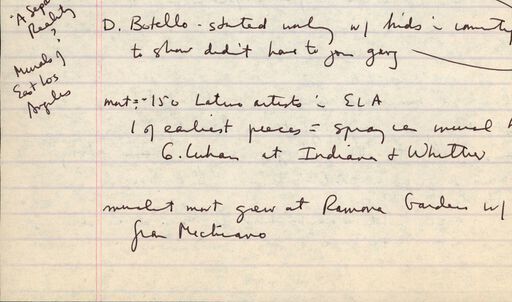 "A Separate
Reality"
?
Murals of
East Los
Angeles
D. Botello - started working w/ kids in community
to show didn't have to join gang
mort = ~150 Latino artists in ELA
1 of earliest pieces = spray can mural
G. Lujan at Indiana & Whittier
muralist mort grew at Ramona Gardens w/
Gran Mechicano